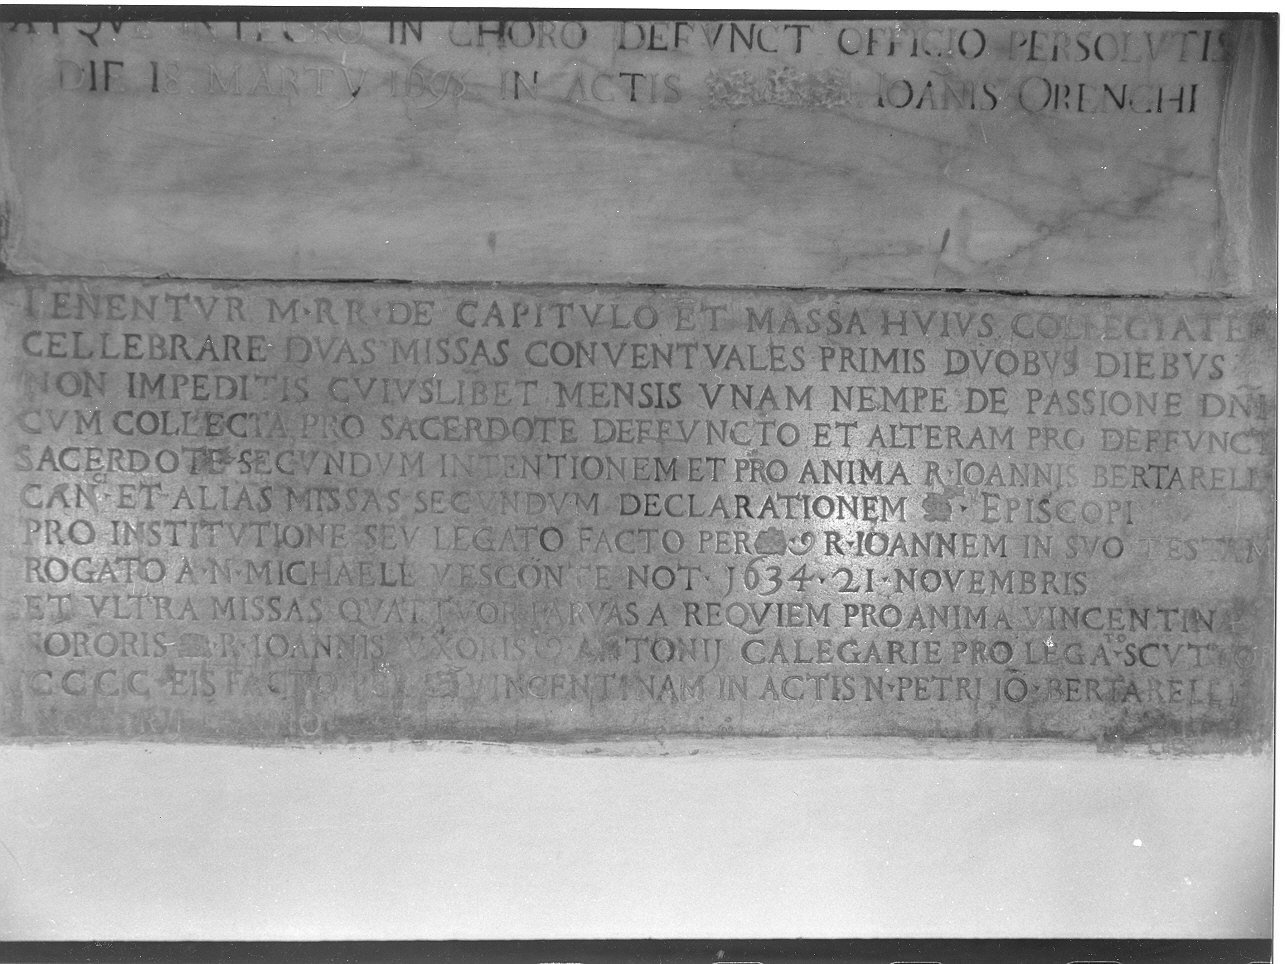 ATQVE INTEGRO IN CHORO DEFVNCT OFFICIO PERSOLVTIS
DIE 18 MARTY IN ACTIS IOANIS ORENCHI
TENENTVR M·RR·DE CAPITVLO ET MASSA HVIVS COLLEGIATE
CELLEBRARE DVAS MISSAS CONVENTVALES PRIMIS DVOBVS DIEBVS
NON IMPEDITIS CVIVSLIBET MENSIS VNAM NEMPE DE PASSIONE DNI
CVM COLLECTA PRO SACERDOTE DEFFVNCTO ET ALTERAM PRO DEFFVNCT
SACERDOTE SECVNDVM INTENTIONEM ET PRO ANIMA R·IOANNIS BERTARELLI
CAN·CI ET·ALIAS MISSAS SECVNDVM DECLARATIONEM EPISCOPI
PRO INSTITVTIONE SEV LEGATO FACTO PER R·IOANNEM IN SVO TESTAM
ROGATO A·N·MICHAELE VESCONTE NOT· 1634·21·NOVEMBRIS
ET VLTRA MISSAS QVATTVOR PARVAS A REQVIEM PRO ANIMA VINCENTIN
SORORIS R·IOANNIS VXORIS Q ANTONIJ CALEGARIE PRO LEGA·TO·SCVT
CCCC EIS FACTO VINCENTINAM IN ACTIS N·PETRI IŌ·BERTARELLI